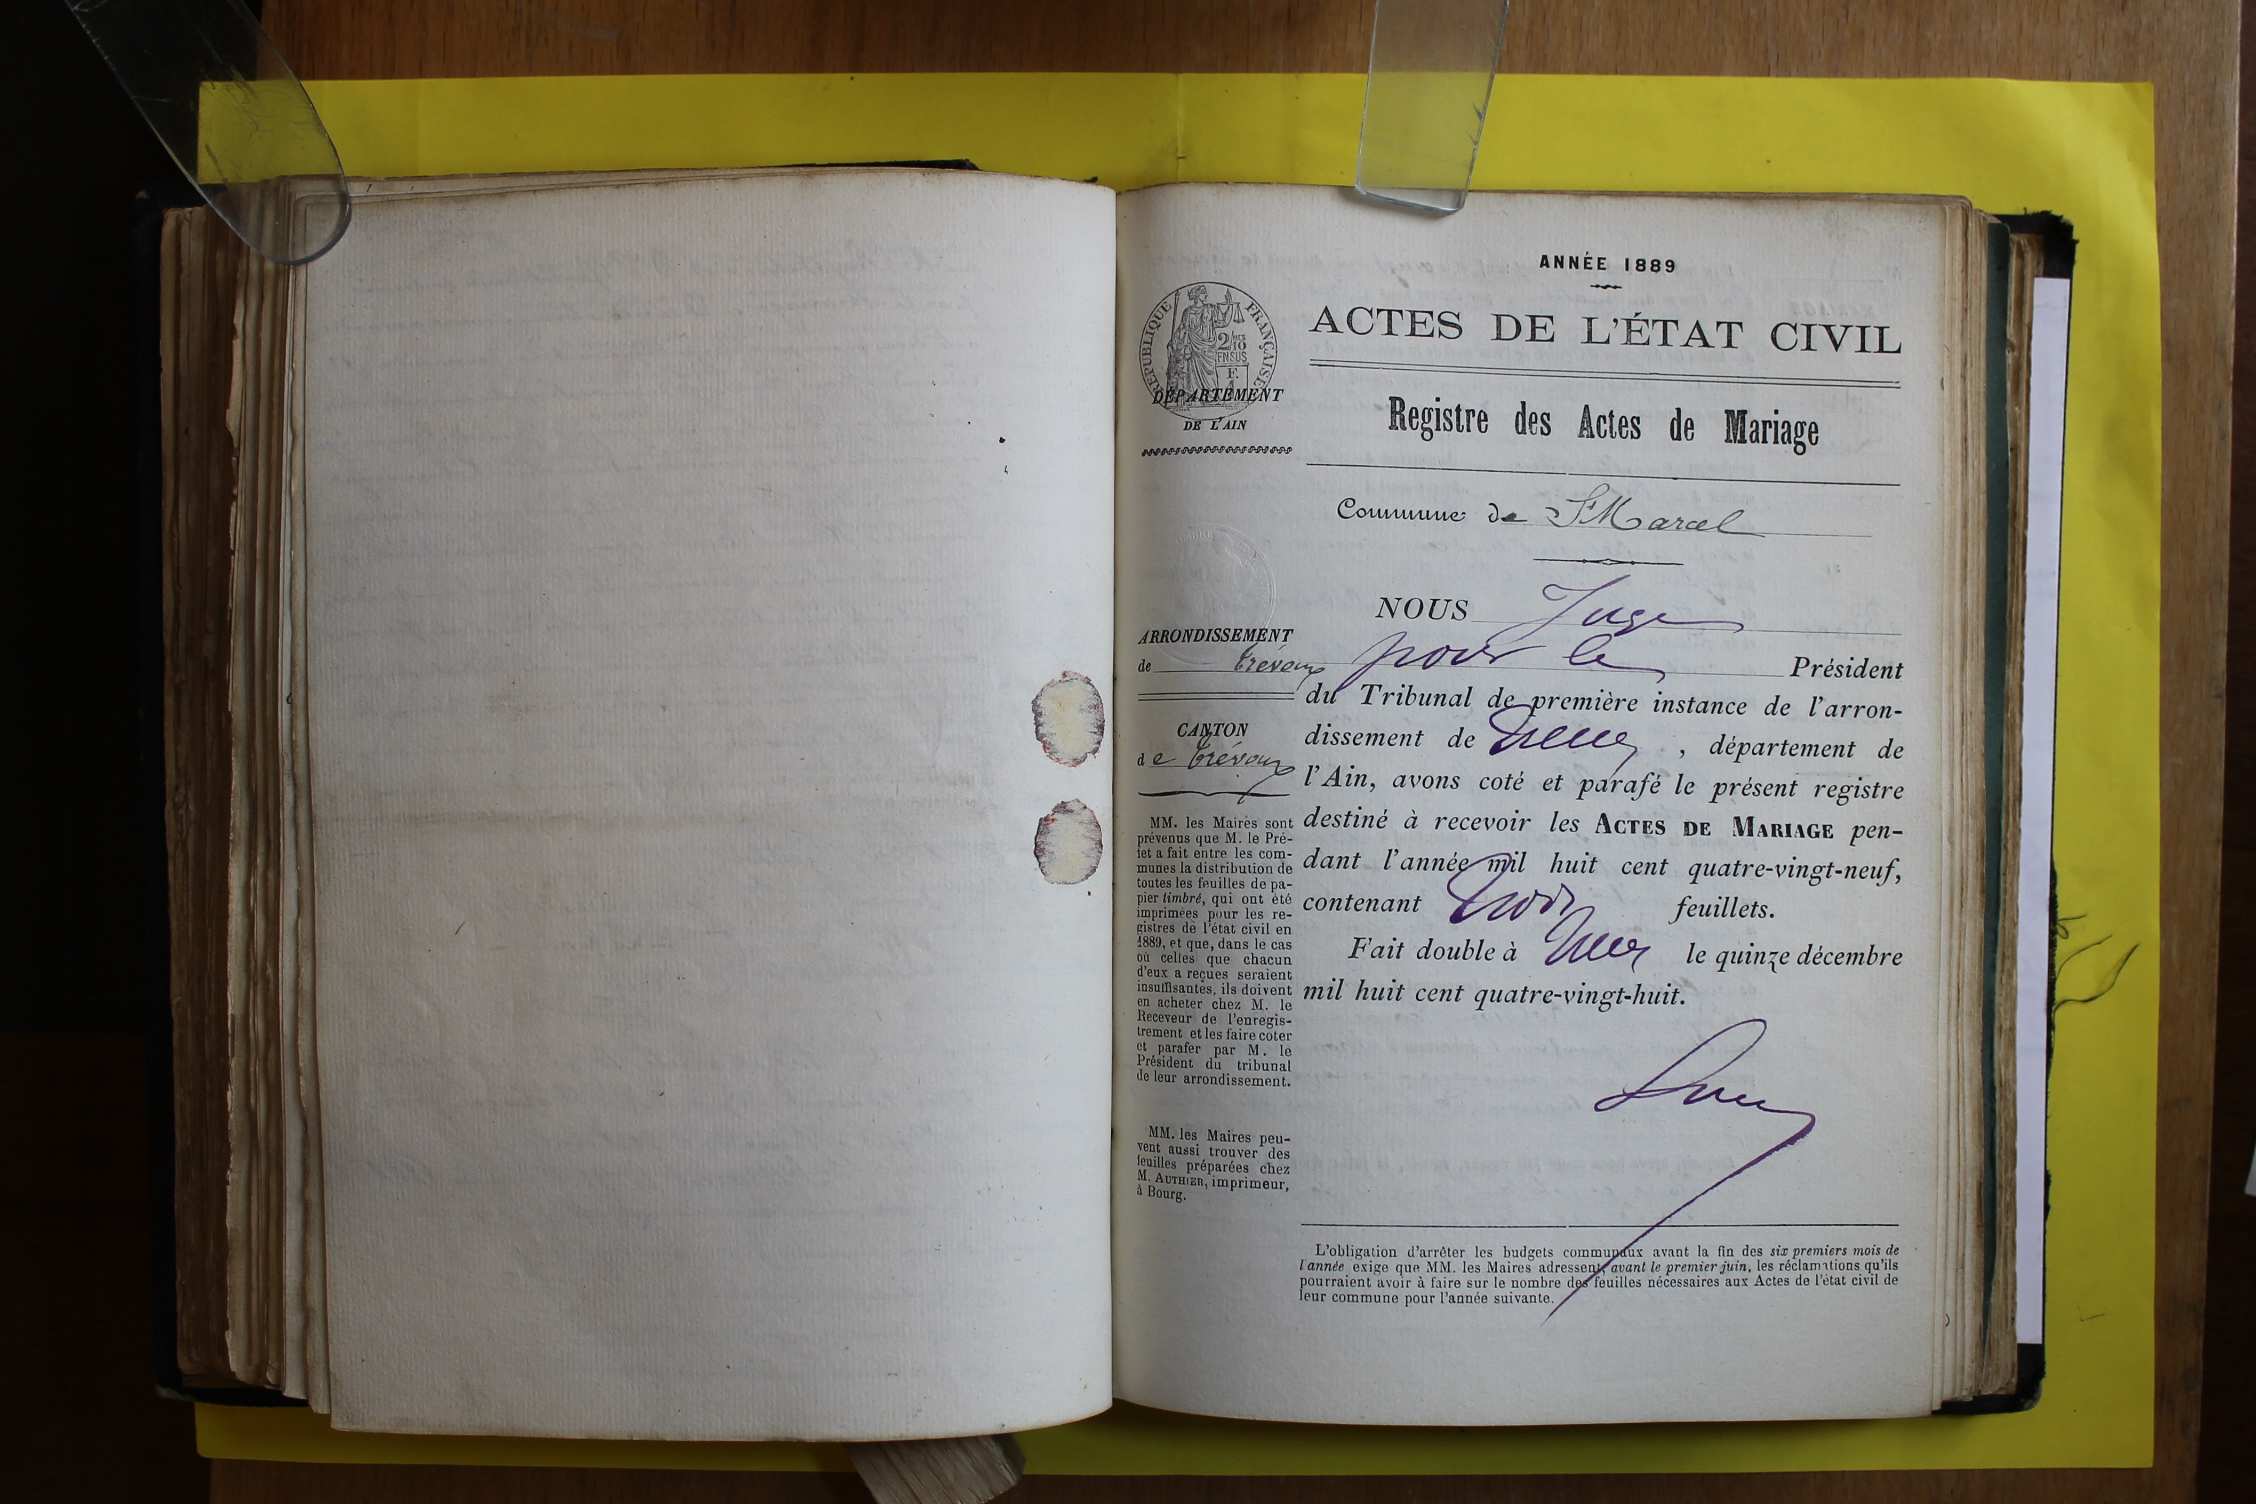 ANNÉE 1889
ACTES DE L'ÉTAT CIVIL
Registre des Actes de Mariage
Commune de St Marcel
RÉPUBLIQUE FRANÇAISE
DÉPARTEMENT
DE L'AIN
ARRONDISSEMENT
de Trévoux
CANTON
de Trévoux
MM. les Maires sont
prévenus que M. le Pré-
fet a fait entre les com-
munes la distribution de
toutes les feuilles de pa-
pier timbré, qui ont été
imprimées pour les re-
gistres de l'état civil en
1889, et que, dans le cas
où celles que chacun
d'eux a reçues seraient
insuffisantes, ils doivent
en acheter chez M. le
Receveur de l'enregis-
trement et les faire coter
et parafer par M. le
Président du tribunal
de leur arrondissement.
MM. les Maires peu-
vent aussi trouver des
feuilles préparées chez
M. AUTHIER, imprimeur,
à Bourg.
NOUS Juge
pour le Président
du Tribunal de première instance de l'arron-
dissement de , département de
l'Ain, avons coté et parafé le présent registre
destiné à recevoir les ACTES DE MARIAGE pen-
dant l'année mil huit cent quatre-vingt-neuf,
contenant trois feuillets.
Fait double à le quinze décembre
mil huit cent quatre-vingt-huit.
L'obligation d'arrêter les budgets communaux avant la fin des six premiers mois de
l'année exige que MM. les Maires adressent, avant le premier juin, les réclamations qu'ils
pourraient avoir à faire sur le nombre des feuilles nécessaires aux Actes de l'état civil de
leur commune pour l'année suivante.